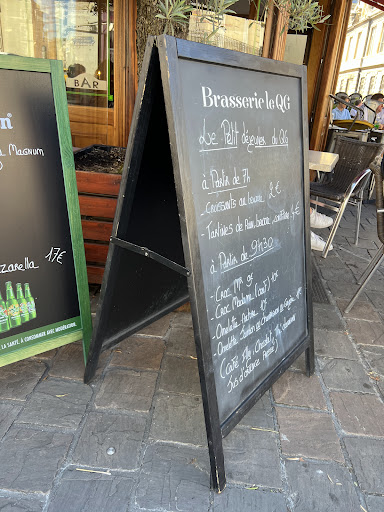 BAR
Magnum
zzarella 17€
LA SANTÉ, À CONSOMMER AVEC MODÉRATION.
Brasserie le QG
Le Petit déjeuner du QG
à Partir de 7h
- Croissants au beurre 2€
- Tartines de Pain, beurre, confiture 4€
à Partir de 9h30
- Croc. Mr 9€
- Croc Madame (œuf) 10€
- Omelette Nature
- Omelette Jambon ou Champignon ou
Café Thé Chocolat
Jus d'orange Pressé